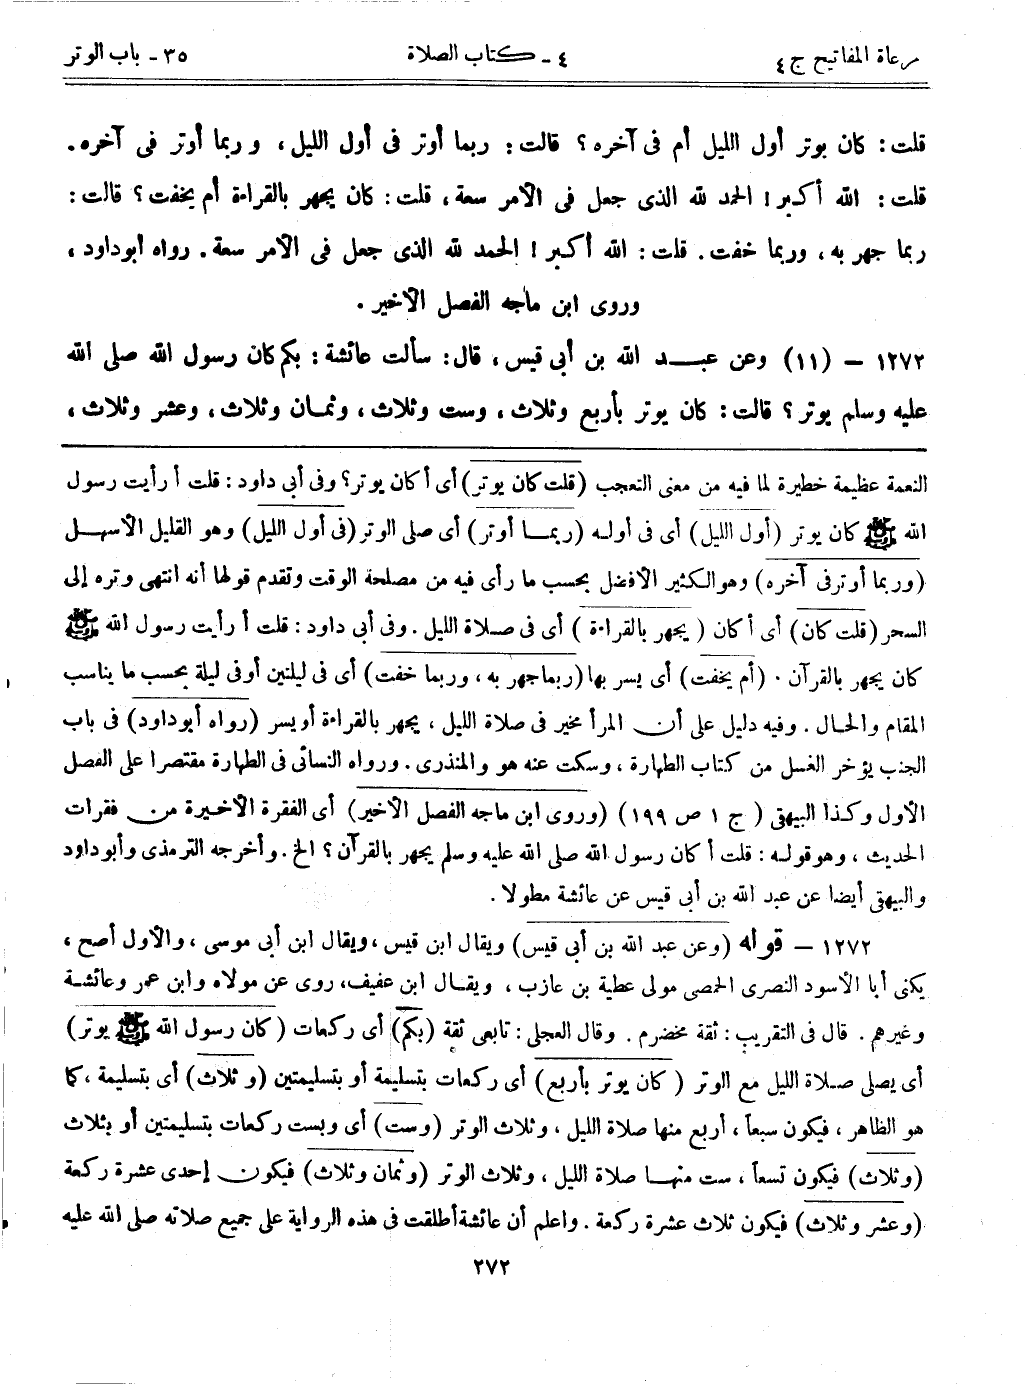 مرعاة المفاتيح ج ٤
٤ - كتاب الصلاة
٣٥ - باب الوتر
قلت: كان يوتر أول الليل أم فى آخره؟ قالت: ربما أوتر فى أول الليل، وربما أوتر فى آخره.
قلت: الله أكبر! الحمد لله الذى جعل فى الأمر سعة، قلت: كان يجهر بالقراءة أم يخفت؟ قالت:
ربما جهر به، وربما خفت. قلت: الله أكبر! الحمد لله الذى جعل فى الأمر سعة. رواه أبوداود،
وروى ابن ماجه الفصل الأخير.
١٢٧٢ - (١١) وعن عبد الله بن أبى قيس، قال: سألت عائشة: بكم كان رسول الله صلى الله
عليه وسلم يوتر؟ قالت: كان يوتر بأربع وثلاث، وست وثلاث، وثمان وثلاث، وعشر وثلاث،
النعمة عظيمة خطيرة لما فيه من معنى التعجب (قلت كان يوتر) أى أكان يوتر؟ وفى أبى داود: قلت أرأيت رسول
الله ﷺ كان يوتر (أول الليل) أى فى أوله (ربما أوتر) أى صلى الوتر (فى أول الليل) وهو القليل الأسهل
(وربما أوتر فى آخره) وهو الكثير الأفضل بحسب ما رأى فيه من مصلحة الوقت وتقدم قولها أنه انتهى وتره إلى
السحر (قلت كان) أى أكان (يجهر بالقراءة) أى فى صلاة الليل. وفى أبى داود: قلت أرأيت رسول الله ﷺ
كان يجهر بالقرآن. (أم يخفت) أى يسر بها (ربما جهر به، وربما خفت) أى فى ليلتين أو فى ليلة بحسب ما يناسب
المقام والحال. وفيه دليل على أن المرأ مخير فى صلاة الليل، يجهر بالقراءة أو يسر (رواه أبوداود) فى باب
الجنب يؤخر الغسل من كتاب الطهارة، وسكت عنه هو والمنذرى. ورواه النسائى فى الطهارة مقتصرا على الفصل
الأول وكذا البيهقى (ج ١ ص ١٩٩) (وروى ابن ماجه الفصل الأخير) أى الفقرة الأخيرة من فقرات
الحديث، وهو قوله: قلت أكان رسول الله صلى الله عليه وسلم يجهر بالقرآن؟ الخ. وأخرجه الترمذى وأبوداود
والبيهقى أيضا عن عبد الله بن أبى قيس عن عائشة مطولا.
١٢٧٢ - قوله (وعن عبد الله بن أبى قيس) ويقال ابن قيس، ويقال ابن أبى موسى، والأول أصح،
يكنى أبا الأسود النصرى الحمصى مولى عطية بن عازب، ويقال ابن عفيف، روى عن مولاه وابن عمر وعائشة
وغيرهم. قال فى التقريب: ثقة مخضرم. وقال العجلى: تابعى ثقة (بكم) أى ركعات (كان رسول الله ﷺ يوتر)
أى يصلى صلاة الليل مع الوتر (كان يوتر بأربع) أى ركعات بتسليمة أو بتسليمتين (وثلاث) أى بتسليمة، كما
هو الظاهر، فيكون سبعاً، أربع منها صلاة الليل، وثلاث الوتر (وست) أى وبست ركعات بتسليمتين أو بثلاث
(وثلاث) فيكون تسعاً، ست منها صلاة الليل، وثلاث الوتر (وثمان وثلاث) فيكون إحدى عشرة ركعة
(وعشر وثلاث) فيكون ثلاث عشرة ركعة. واعلم أن عائشة أطلقت فى هذه الرواية على جميع صلاته صلى الله عليه
٢٧٢